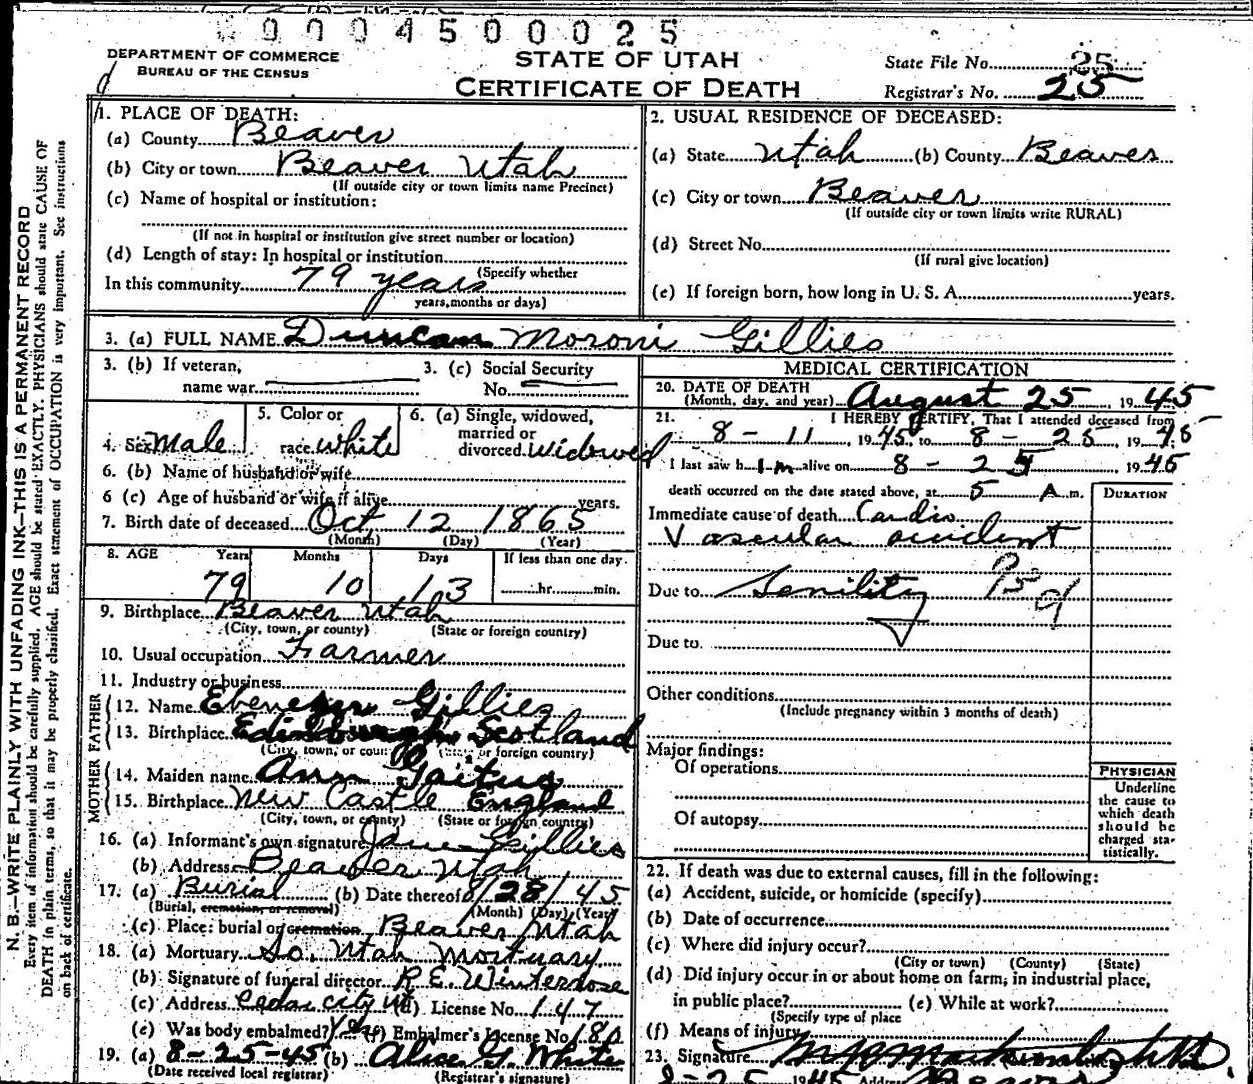 0004500025
DEPARTMENT OF COMMERCE
BUREAU OF THE CENSUS
STATE OF UTAH
CERTIFICATE OF DEATH
State File No. 25
Registrar's No. 25
N. B.—WRITE PLAINLY WITH UNFADING INK—THIS IS A PERMANENT RECORD
Every item of information should be carefully supplied. AGE should be stated EXACTLY. PHYSICIANS should state CAUSE OF
DEATH in plain terms, so that it may be properly classified. Exact statement of OCCUPATION is very important. See instructions
on back of certificate.
1. PLACE OF DEATH:
(a) County Beaver
(b) City or town Beaver Utah
(If outside city or town limits name Precinct)
(c) Name of hospital or institution:
(If not in hospital or institution give street number or location)
(d) Length of stay: In hospital or institution
(Specify whether
In this community 79 years
years, months or days)
2. USUAL RESIDENCE OF DECEASED:
(a) State Utah (b) County Beaver
(c) City or town Beaver
(If outside city or town limits write RURAL)
(d) Street No.
(If rural give location)
(e) If foreign born, how long in U. S. A. years.
3. (a) FULL NAME Duncan Moroni Gillies
3. (b) If veteran,
name war
3. (c) Social Security
No.
4. Sex Male
5. Color or
race White
6. (a) Single, widowed,
married or
divorced Widowed
6. (b) Name of husband or wife
6 (c) Age of husband or wife if alive years.
7. Birth date of deceased Oct 12 1865
(Month) (Day) (Year)
8. AGE Years Months Days If less than one day
79 10 13 hr. min.
9. Birthplace Beaver Utah
(City, town, or county) (State or foreign country)
10. Usual occupation Farmer
11. Industry or business
FATHER
12. Name Ebenezer Gillies
13. Birthplace Edinburgh Scotland
(City, town, or county) (State or foreign country)
MOTHER
14. Maiden name Ann
15. Birthplace New Castle England
(City, town, or county) (State or foreign country)
16. (a) Informant's own signature Jane Gillies
(b) Address Beaver Utah
17. (a) Burial (b) Date thereof 8/28/45
(Burial, cremation, or removal) (Month) (Day) (Year)
(c) Place: burial or cremation Beaver Utah
18. (a) Mortuary So. Utah Mortuary
(b) Signature of funeral director R. E. Winterose
(c) Address Cedar City Ut (d) License No. 147
(e) Was body embalmed? Yes (f) Embalmer's License No. 180
19. (a) 8-25-45 (b) Alice G. White
(Date received local registrar) (Registrar's signature)
MEDICAL CERTIFICATION
20. DATE OF DEATH
(Month, day, and year) August 25 1945
21. I HEREBY CERTIFY, That I attended deceased from
8 - 11, 1945 to 8 - 25 1945
I last saw him alive on 8 - 25 1945
death occurred on the date stated above, at 5 A m.
DURATION
Immediate cause of death Cardio
Vascular accident
Due to Senility
Due to
Other conditions
(Include pregnancy within 3 months of death)
Major findings:
Of operations
Of autopsy
PHYSICIAN
Underline
the cause to
which death
should be
charged sta-
tistically.
22. If death was due to external causes, fill in the following:
(a) Accident, suicide, or homicide (specify)
(b) Date of occurrence
(c) Where did injury occur?
(City or town) (County) (State)
(d) Did injury occur in or about home on farm, in industrial place,
in public place? (e) While at work?
(Specify type of place
(f) Means of injury
23. Signature
8-25 1945 Address Beaver